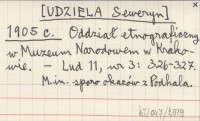 [UDZIELA Seweryn]
1905 c. Oddział etnograficzny
w Muzeum Narodowem w Krako-
wie. – Lud 11, nr 3: 326-327.
M.in. sporo okazów z Podhala.